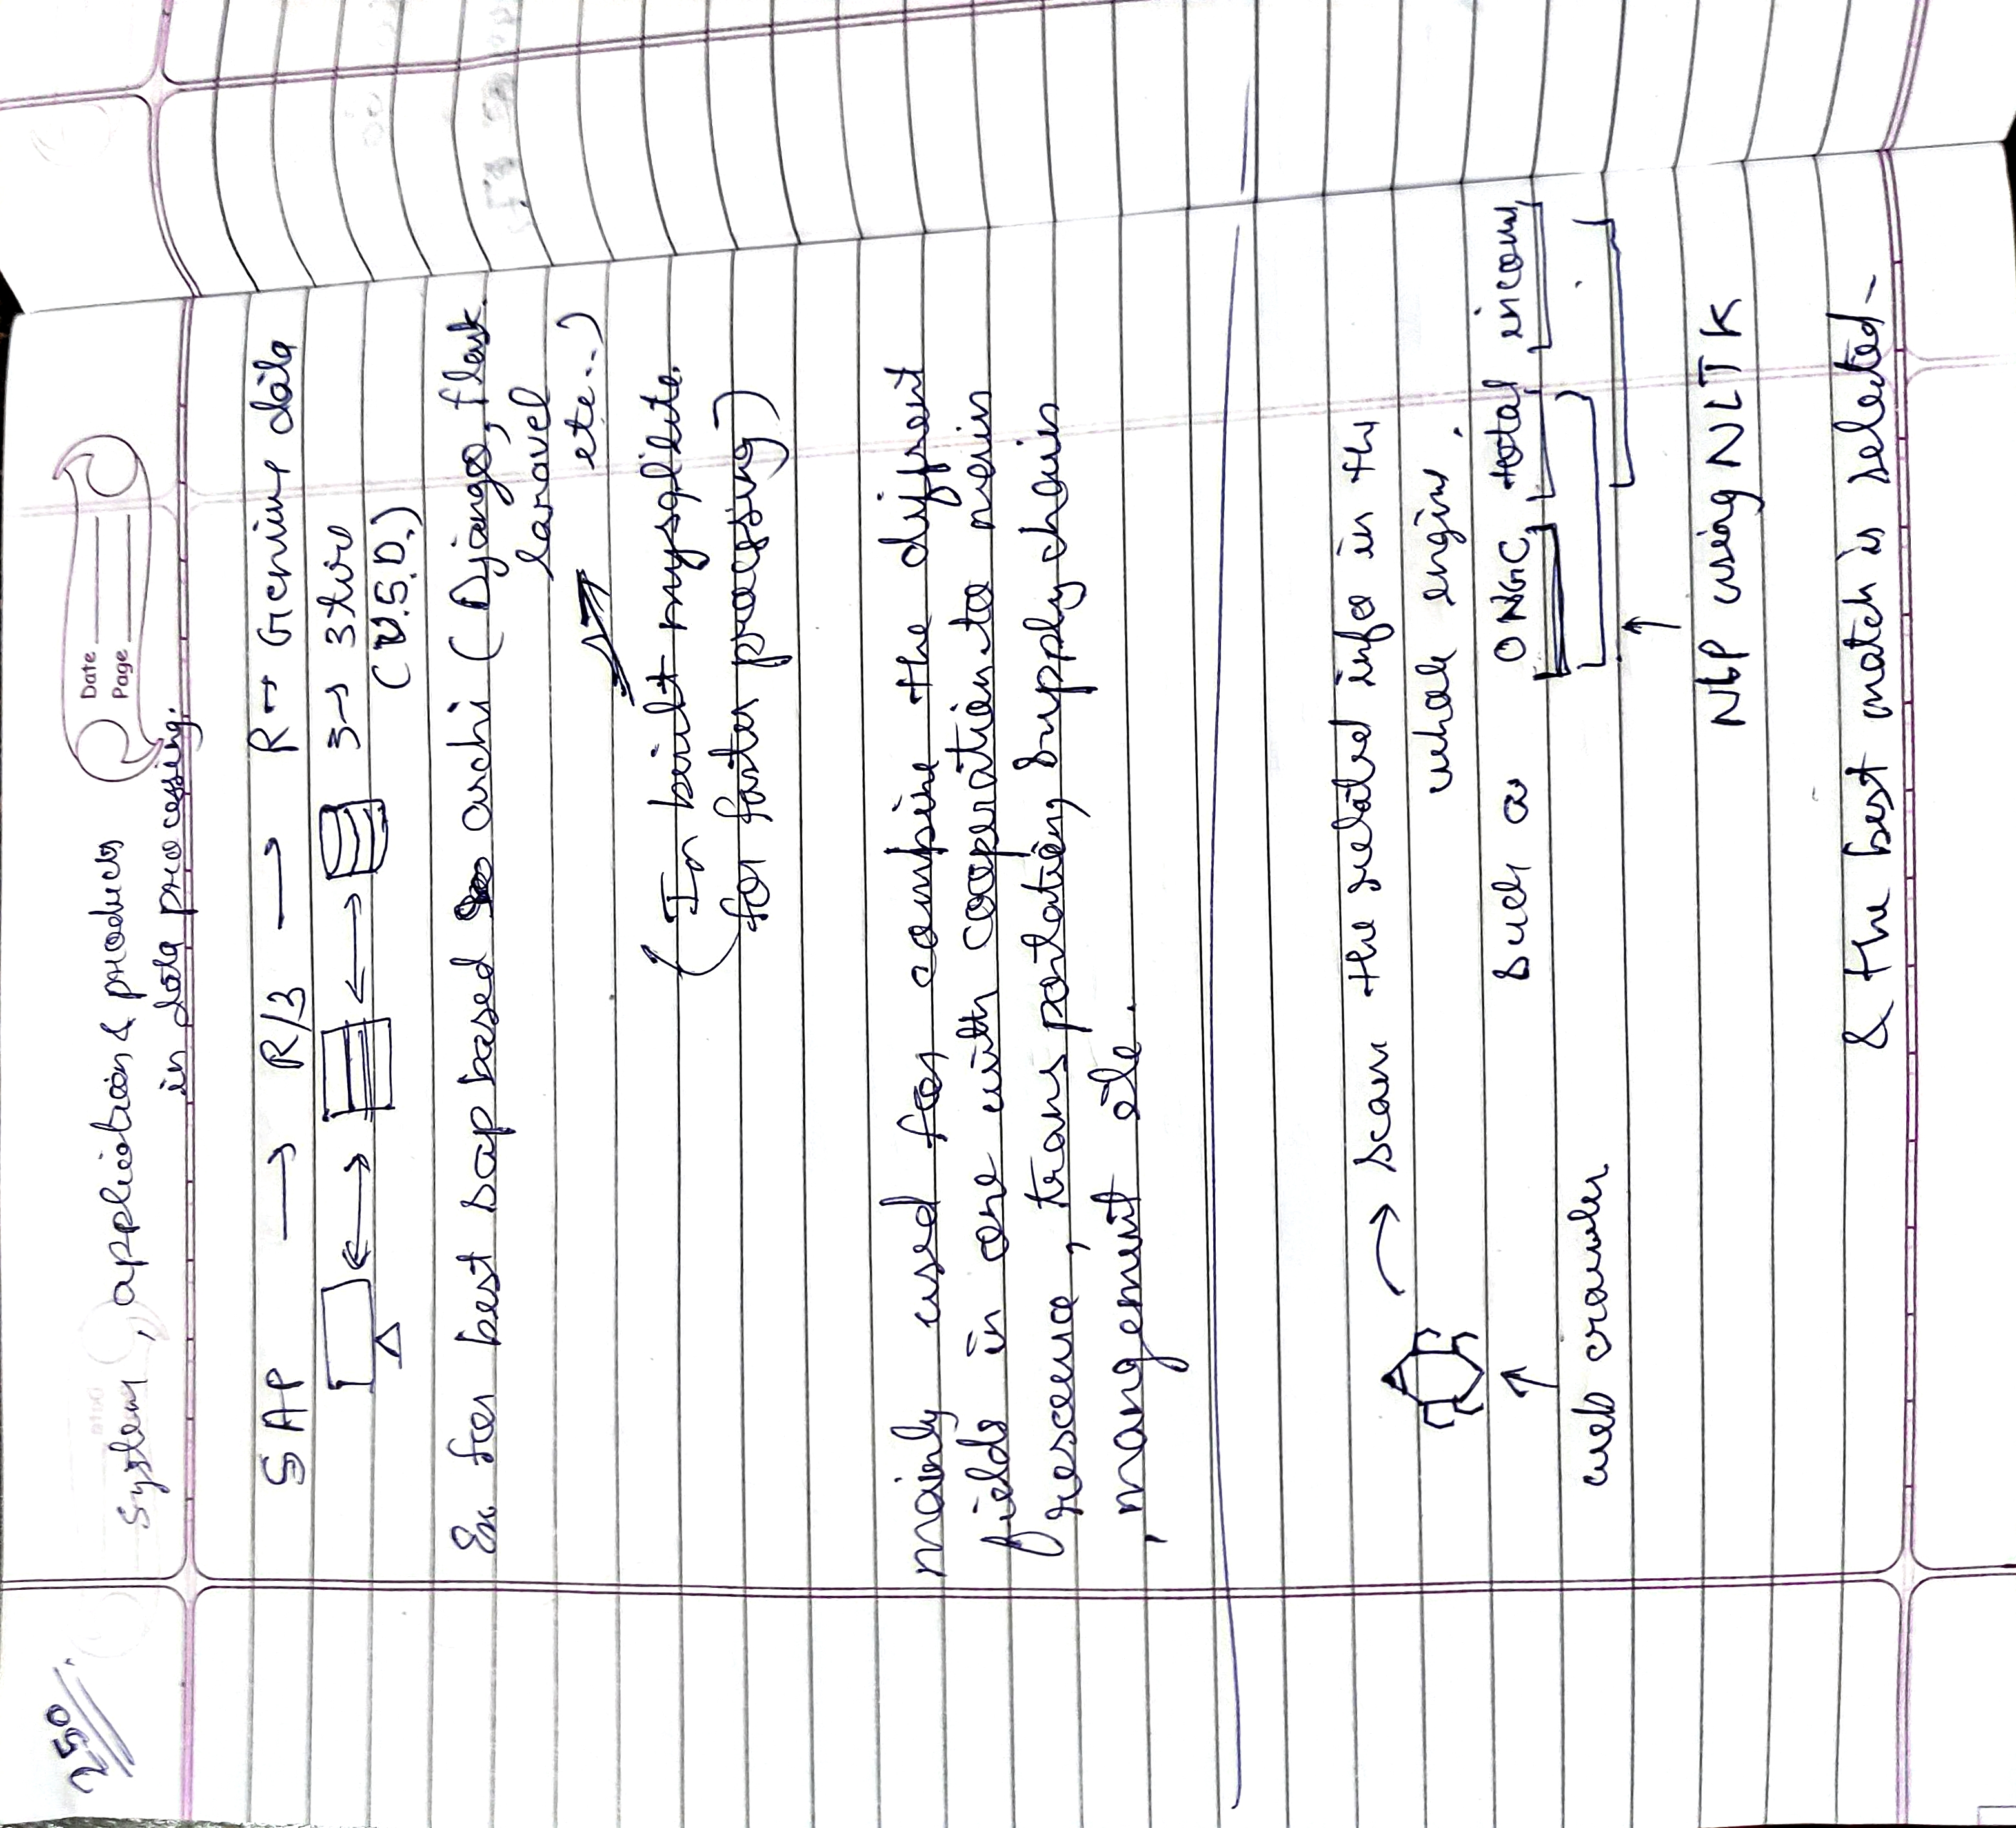 250
Date
Page
System, application & products
in data processing.
SAP → R/3 → R → Genius data
3 → 3 tire
(U.S.D.)
Ex. for best sap based archi (Django, flask
laravel
etc..)
(In built mysqlite.
for faster processing)
mainly used for combine the different
fields in one with cooperation to main
resource, transportation, supply chain
, mangement etc.
→ scan the related info in the
whole engine.
such as ONGC, total, income,
web crawler
NLP using NLTK
& the best match is selected-